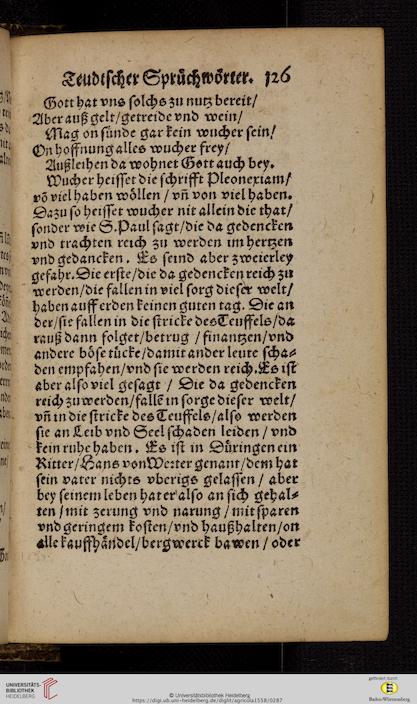 Teudtscher Sprüchwörter. 126
Gott hat vns solchs zu nutz bereit/
Aber auß gelt/getreide vnd wein/
Mag on sünde gar kein wucher sein/
On hoffnung alles wucher frey/
Außleihen da wohnet Gott auch bey.
Wucher heisset die schrifft Pleonexiam/
võ viel haben wöllen / vñ von viel haben.
Dazu so heisset wucher nit allein die that/
sonder wie S. Paul sagt/die da gedencken
vnd trachten reich zu werden im hertzen
vnd gedancken. Es seind aber zweierley
gefahr. Die erste/die da gedencken reich zu
werden/die fallen in viel sorg dieser welt/
haben auff erden keinen guten tag. Die an
der/sie fallen in die stricke des Teuffels/da
rauß dann folget/betrug / finantzen/vnd
andere böse tücke/damit ander leute scha-
den empfahen/vnd sie werden reich. Es ist
aber also viel gesagt / Die da gedencken
reich zu werden/fallẽ in sorge dieser welt/
vñ in die stricke des Teuffels/also werden
sie an Leib vnd Seel schaden leiden / vnd
kein ruhe haben. Es ist in Düringen ein
Ritter/Hans von genant/dem hat
sein vater nichts vberigs gelassen / aber
bey seinem leben hat er also an sich gehal-
ten/mit zerung vnd narung / mit sparen
vnd geringem kosten/vnd haußhalten/on
alle kauffhändel/bergwerck bawen / oder
UNIVERSITÄTS-
BIBLIOTHEK
HEIDELBERG
© Universitätsbibliothek Heidelberg
https://digi.ub.uni-heidelberg.de/diglit/agricola1558/0287
gefördert durch
Baden-Württemberg